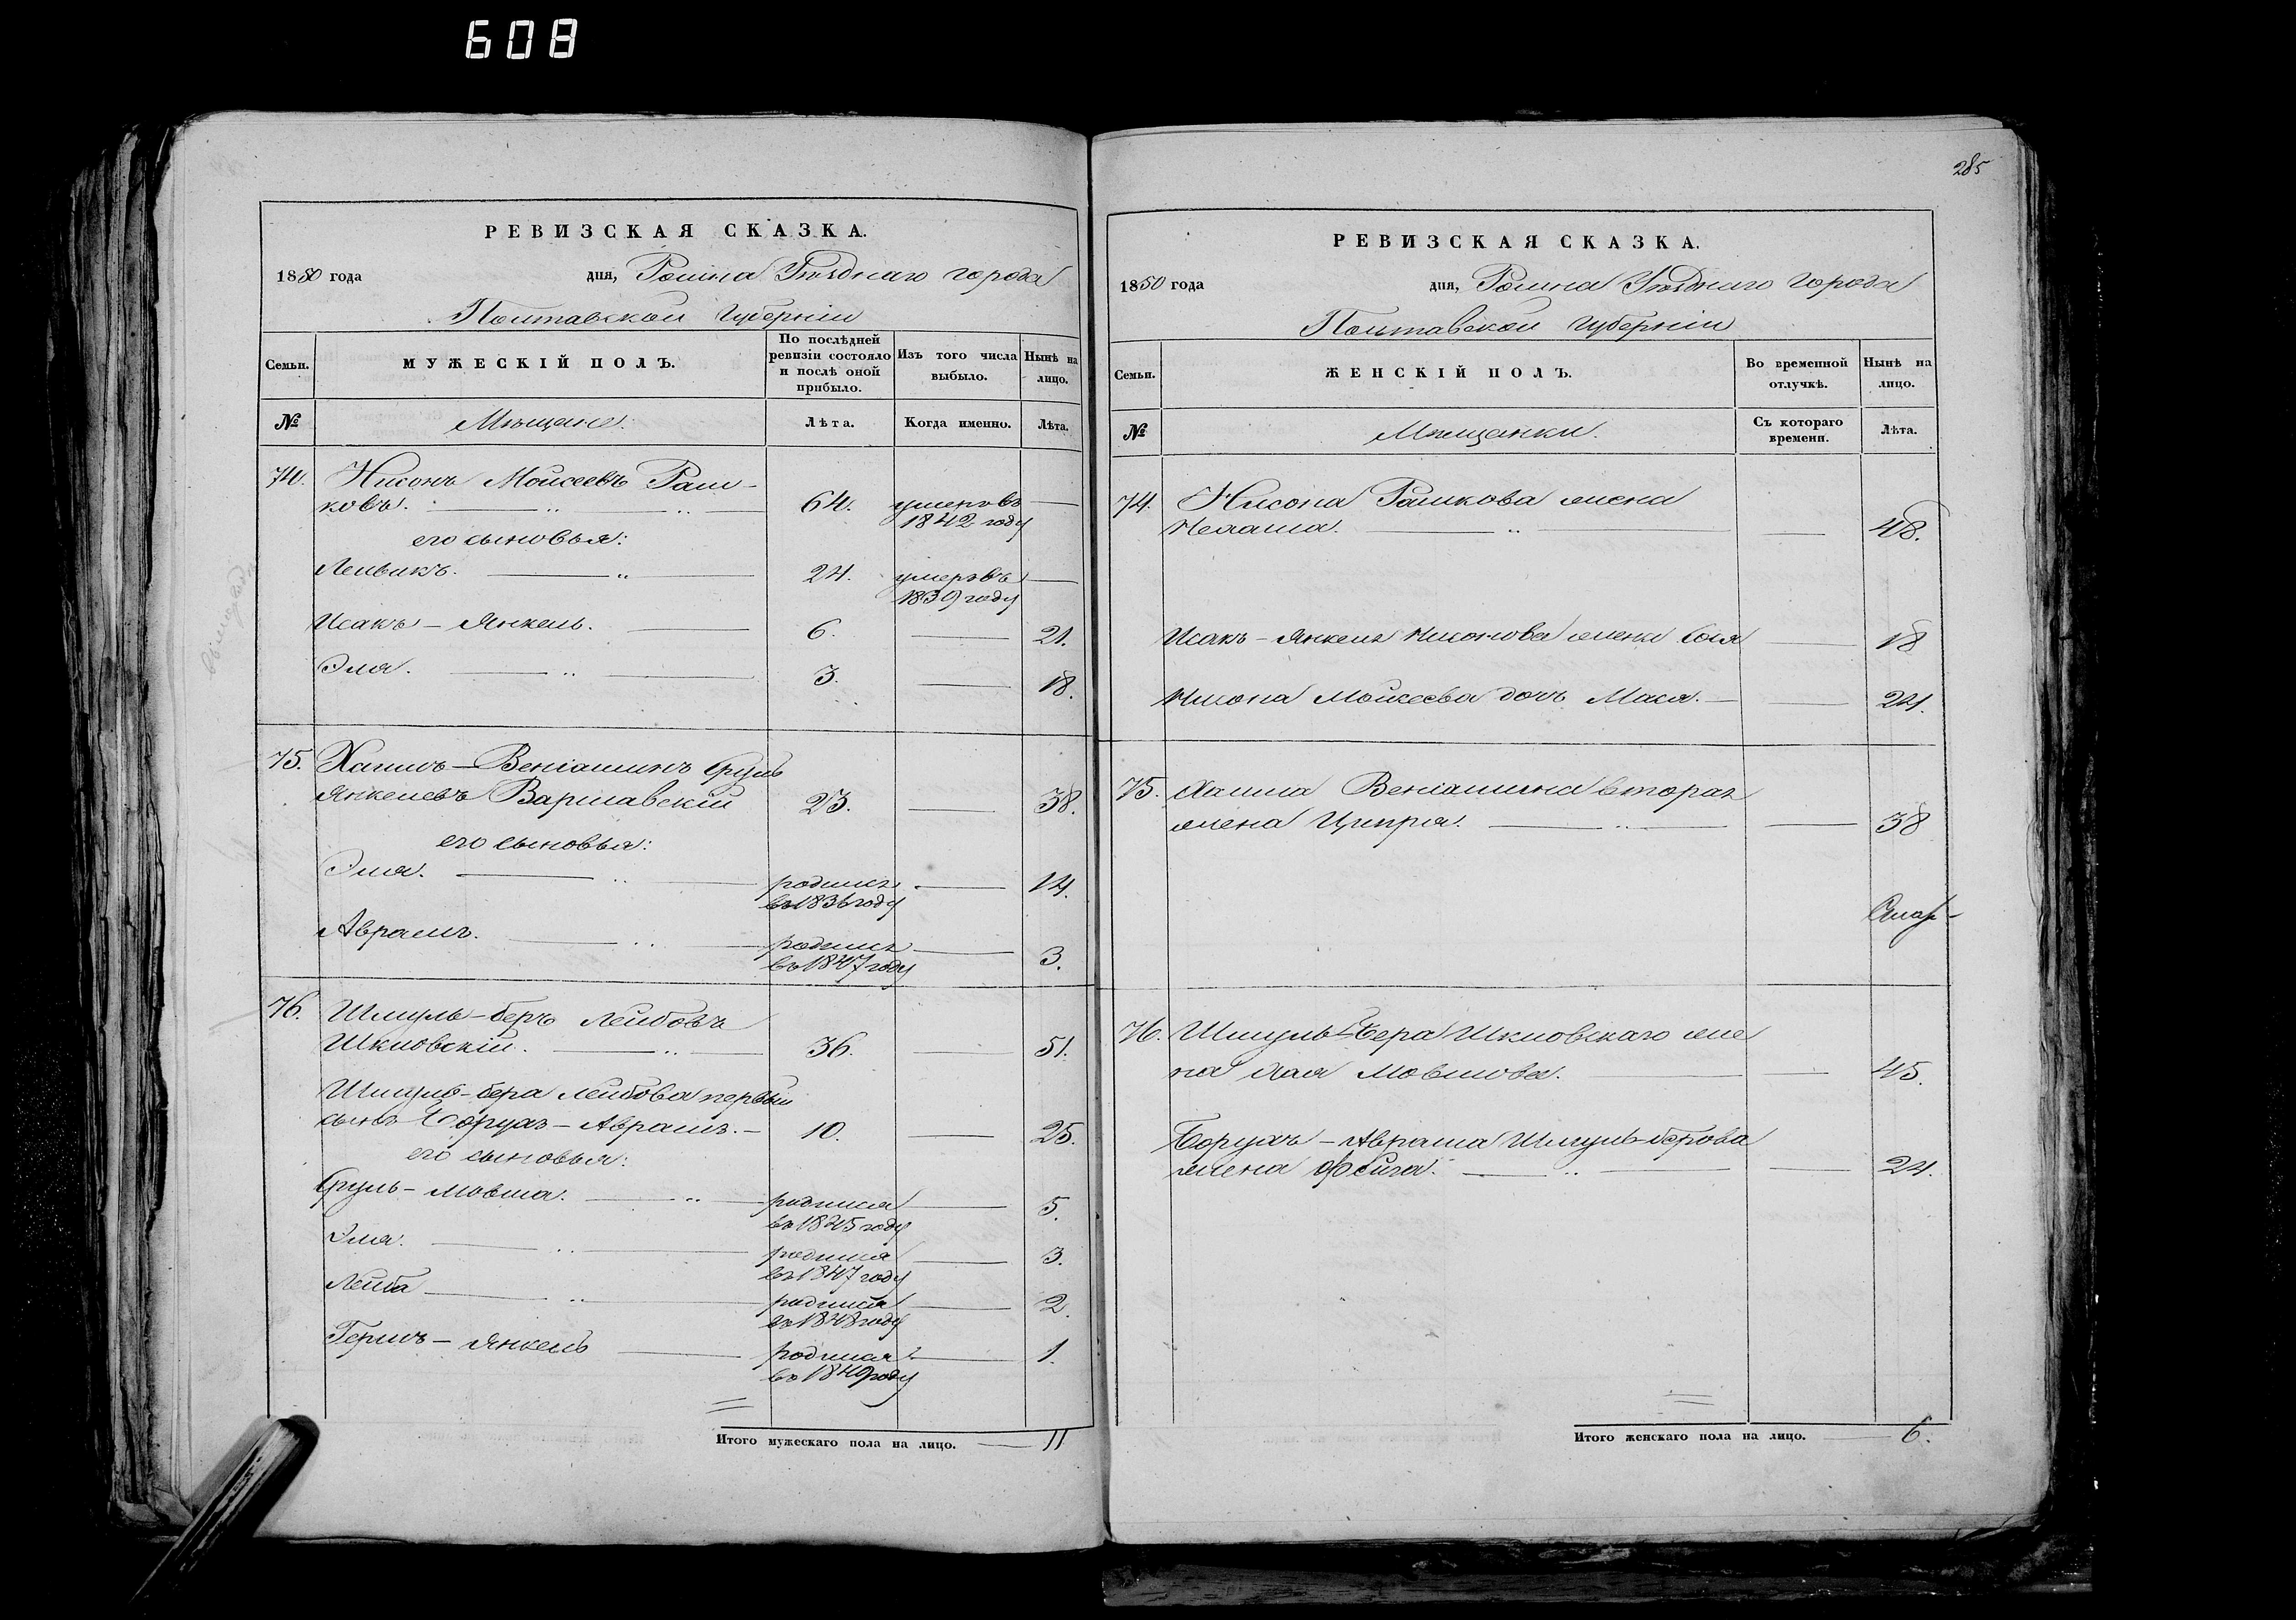 608
РЕВИЗСКАЯ СКАЗКА.
1850 года дня, Ромна Уѣзднаго города
Полтавской Губерніи
Семьи.
МУЖЕСКІЙ ПОЛЪ.
По послѣдней ревизіи состояло и послѣ оной прибыло.
Изъ того числа выбыло.
Нынѣ на лицо.
№
Мѣщане.
Лѣта.
Когда именно.
Лѣта.
74. Нисонъ Моисеевъ Раш-
ковъ. 64. умеръ въ
1842 году
его сыновья:
Лейвикъ. 24. умеръ въ
1839 году
Исакъ - Янкель. 6. 21.
Эля. 3. 18.
75. Хаимъ - Веніаминъ Сруль
Янкелевъ Варшавскій 23. 38.
его сыновья:
Эля. родился 14.
въ 1836 году
Аврамъ. родился 3.
въ 1847 году
76. Шмуль - беръ Лейбовъ
Шкловскій. 36. 51.
Шмуль - бера Лейбова первый
сынъ Борухъ - Аврамъ. - 10. 25.
его сыновья:
Сруль - Мовша. родился 5.
въ 1845 году
Эля. родился 3.
въ 1847 году
Лейба родился 2.
въ 1848 году
Гершъ - Янкель родился 1.
въ 1849 году
Итого мужескаго пола на лицо. 11
285
РЕВИЗСКАЯ СКАЗКА.
1850 года дня, Ромна Уѣзднаго Города
Полтавской Губерніи
Семьи.
ЖЕНСКІЙ ПОЛЪ.
Во временной отлучкѣ.
Нынѣ на лицо.
№
Мѣщанки.
Съ котораго времени.
Лѣта.
74. Нисона Рашкова жена
48.
Исакъ - Янкеля Нисонова жена Сося 18
Нисона Моисеева дочь Мася. 24.
75. Хаима Веніамина вторая
жена Ципра. 38
76. Шмуль - Бера Шкловскаго же
на Хая Мовшова. 45.
Борухъ - Аврама Шмуль-берова
жена Фейга. 24.
Итого женскаго пола на лицо. 6.